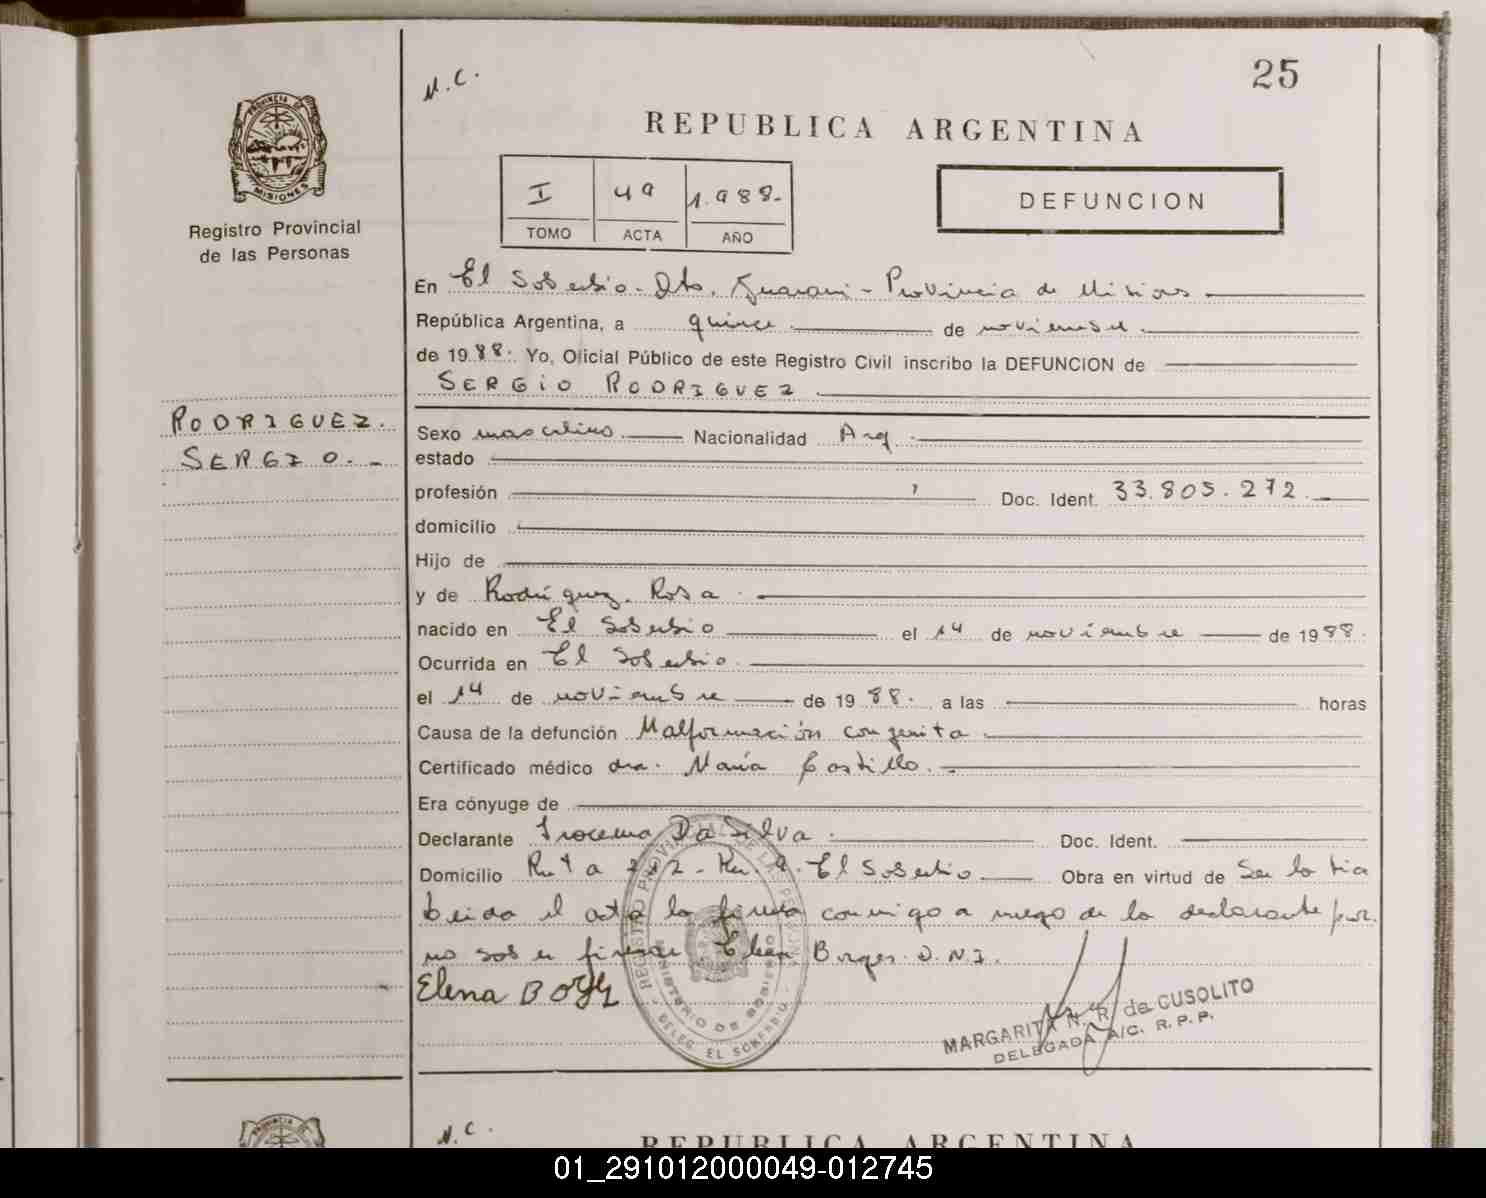 25
N.C.
REPUBLICA ARGENTINA
PROVINCIA DE
MISIONES
Registro Provincial
de las Personas
I 49 1.988.-
TOMO ACTA AÑO
DEFUNCION
En El Soberbio. Dto. Guarani - Provincia de Misiones
República Argentina, a quince de noviembre
de 1988. Yo, Oficial Público de este Registro Civil inscribo la DEFUNCION de
SERGIO RODRIGUEZ
RODRIGUEZ.
SERGIO.-
Sexo masculino Nacionalidad Arg.
estado
profesión Doc. Ident. 33.805.272.
domicilio
Hijo de
y de Rodriguez. Rosa
nacido en El Soberbio el 14 de noviembre de 1988.
Ocurrida en El Soberbio
el 14 de noviembre de 1988. a las horas
Causa de la defunción Malformación congenita
Certificado médico dra. María Castillo.
Era cónyuge de
Declarante Irocema Da Silva Doc. Ident.
Domicilio Ruta 2 - Km. 9. El Soberbio Obra en virtud de Ser la tia
Leida el acta la firma conmigo a ruego de la declarante por
no saber firmar Elena Borges D.N.I.
Elena Borges
REGISTRO PROVINCIAL DE LAS PERSONAS
MINISTERIO DE GOBIERNO
DELEG. EL SOBERBIO
MARGARITA N. R. de CUSOLITO
DELEGADA A/C. R. P. P.
N.C.
REPUBLICA ARGENTINA
01_291012000049-012745